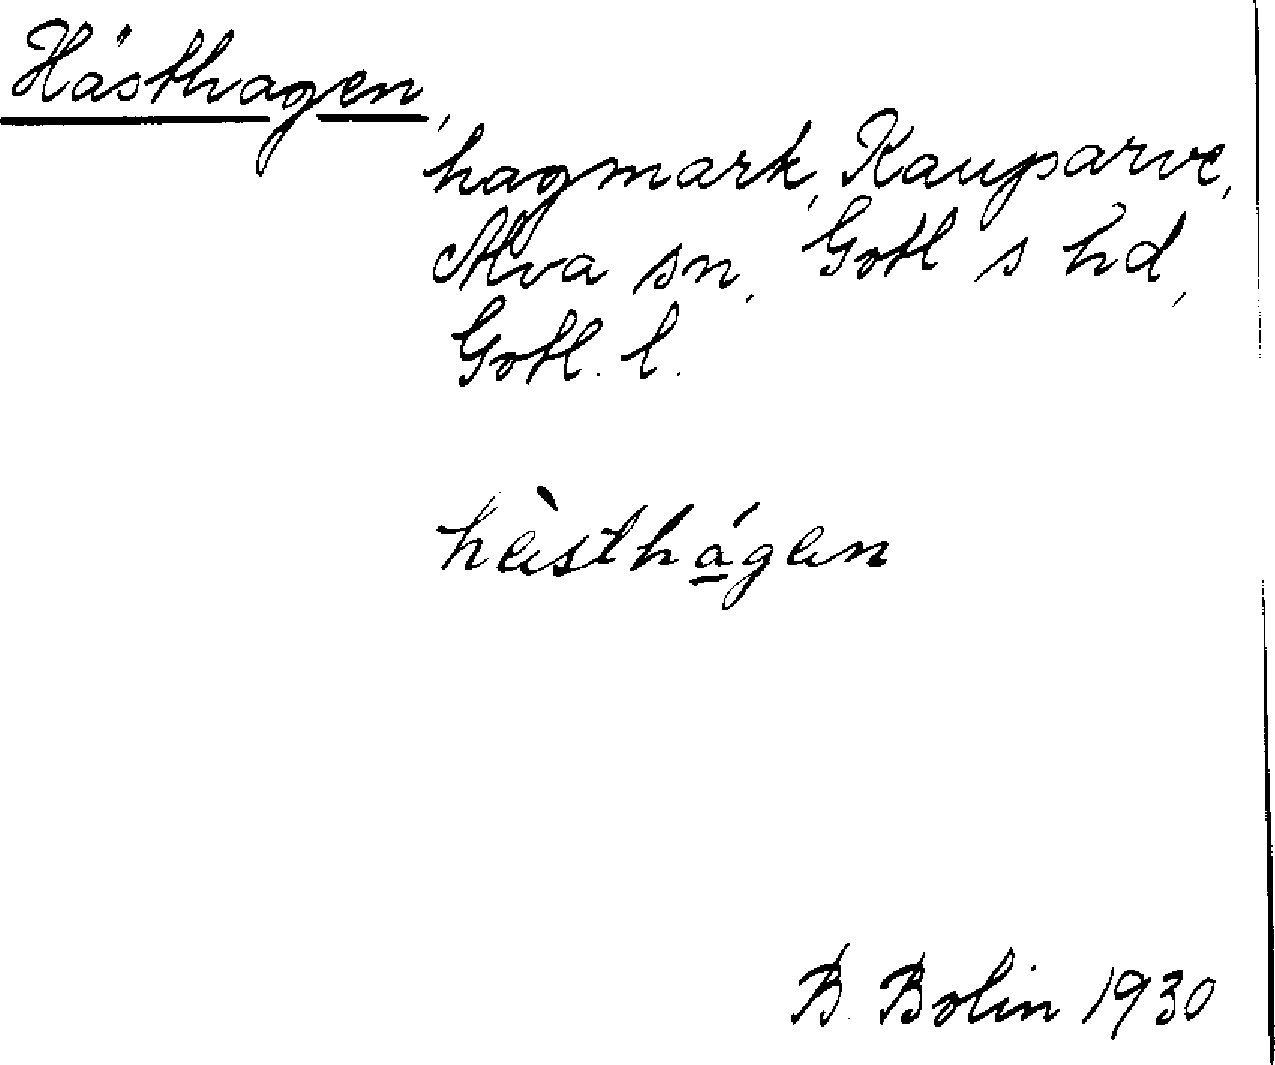 Hästhagen,
hagmark, Kauparve,
Alva sn, Gotl s hd,
Gotl. l.
hä̀sthá̱gän
B. Bolin 1930